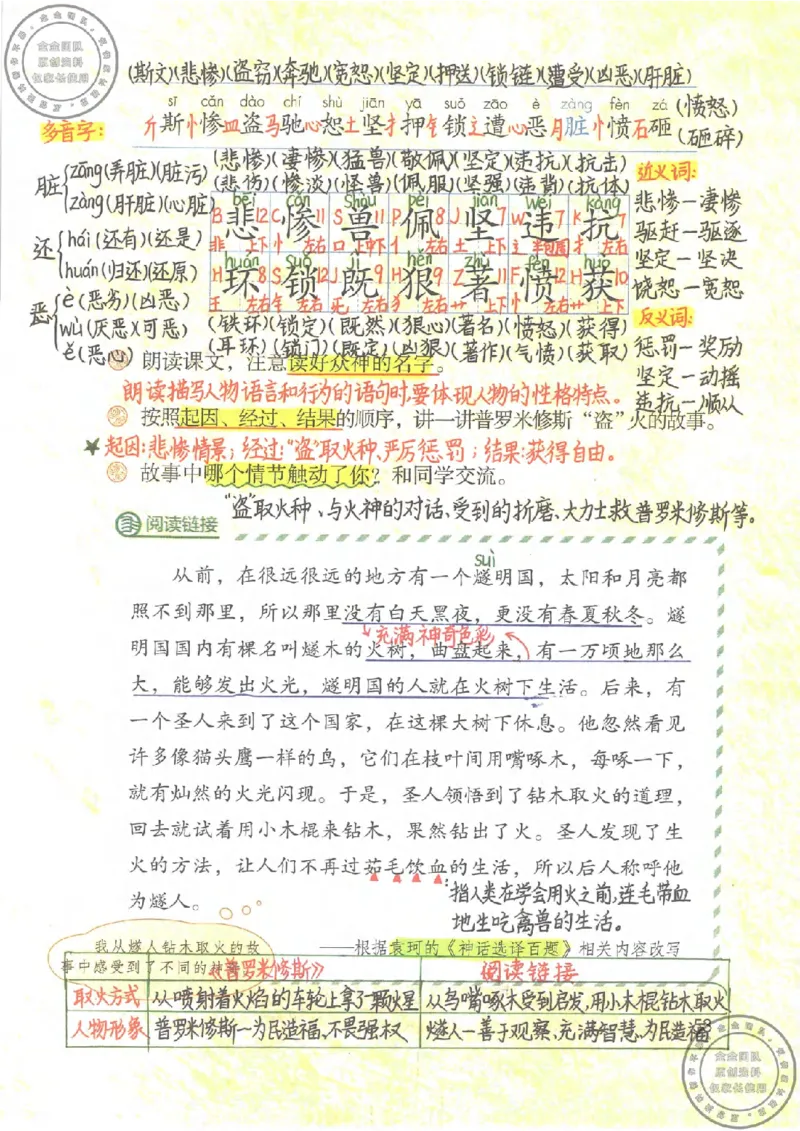 (斯文)(悲惨)(盗窃)(奔驰)(宽恕)(坚定)(押送)(锁链)(遭受)(凶恶)(肝脏)
sī cǎn dào chí shù jiān yā suǒ zāo è zàng fèn zá (愤怒)
斤斯忄惨皿盗马驰心恕土坚扌押钅锁辶遭心恶月脏忄愤石砸 (砸碎)
多音字:
脏 zāng(弄脏)(脏污)
zàng(肝脏)(心脏)
还 hái(还有)(还是)
huán(归还)(还原)
恶 è(恶劣)(凶恶)
wù(厌恶)(可恶)
ě(恶心)
(悲惨)(凄惨)(猛兽)(敬佩)(坚定)(违抗)(抗击)
(悲伤)(惨淡)(怪兽)(佩服)(坚强)(违背)(抗体)
bēi cǎn shòu pèi jiān wéi kàng
B悲12 C惨11 S兽11 P佩8 J坚7 W违7 K抗7
非 上下 忄 左右 口 上下 亻 左右 土 上下 辶 半包围 扌 左右
huán suǒ jì hěn zhù fèn huò
H环8 S锁12 J既9 H狠9 Z著11 F愤12 H获10
王 左右 钅 左右 无 左右 犭 左右 艹 上下 忄 左右 艹 上下
(铁环)(锁定)(既然)(狠心)(著名)(愤怒)(获得)
(耳环)(锁门)(既定)(凶狠)(著作)(气愤)(获取)
近义词:
悲惨—凄惨
驱赶—驱逐
坚定—坚决
饶恕—宽恕
反义词:
惩罚—奖励
坚定—动摇
违抗—顺从
朗读课文，注意读好众神的名字。
朗读描写人物语言和行为的语句时,要体现人物的性格特点。
按照起因、经过、结果的顺序，讲一讲普罗米修斯“盗”火的故事。
★起因:悲惨情景；经过:“盗”取火种、严厉惩罚；结果:获得自由。
故事中哪个情节触动了你？和同学交流。
“盗”取火种、与火神的对话、受到的折磨、大力士救普罗米修斯等。
阅读链接
suì
从前，在很远很远的地方有一个燧明国，太阳和月亮都
照不到那里，所以那里没有白天黑夜，更没有春夏秋冬。燧
充满神奇色彩
明国国内有棵名叫燧木的火树，曲盘起来，有一万顷地那么
大，能够发出火光，燧明国的人就在火树下生活。后来，有
一个圣人来到了这个国家，在这棵大树下休息。他忽然看见
许多像猫头鹰一样的鸟，它们在枝叶间用嘴啄木，每啄一下，
就有灿然的火光闪现。于是，圣人领悟到了钻木取火的道理，
回去就试着用小木棍来钻木，果然钻出了火。圣人发现了生
火的方法，让人们不再过茹毛饮血的生活，所以后人称呼他
为燧人。
:指人类在学会用火之前,连毛带血
地生吃禽兽的生活。
——根据袁珂的《神话选译百题》相关内容改写
我从燧人钻木取火的故
事中感受到了不同的神
《普罗米修斯》 阅读链接
取火方式 从喷射着火焰的车轮上拿了一颗火星 从鸟嘴啄木受到启发,用小木棍钻木取火
人物形象 普罗米修斯～为民造福、不畏强权 燧人—善于观察、充满智慧、为民造福